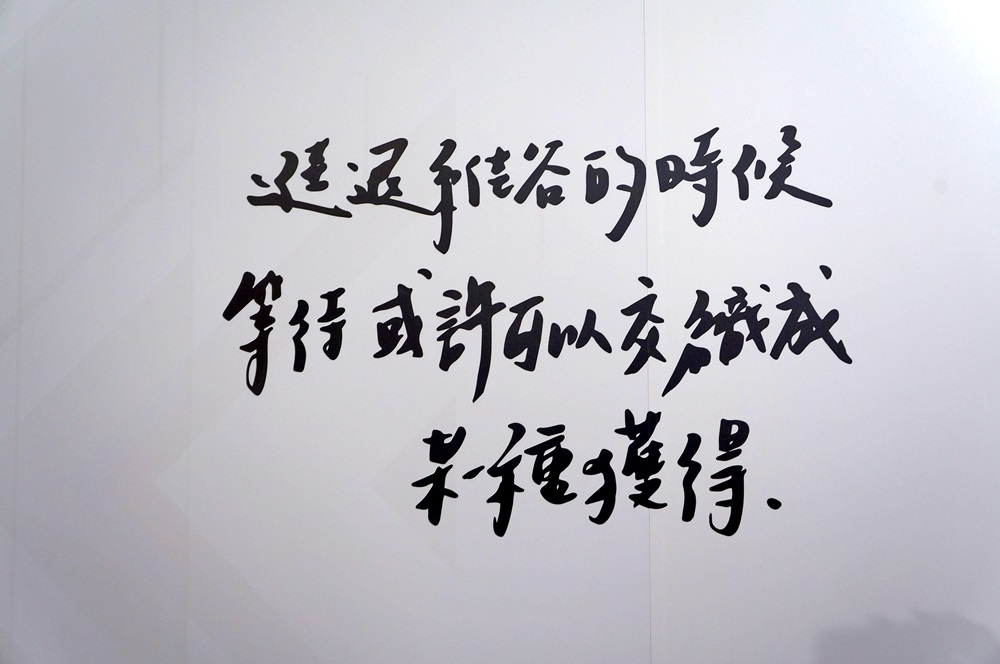 進退維谷的時候
等待或許可以交織成
某種獲得.